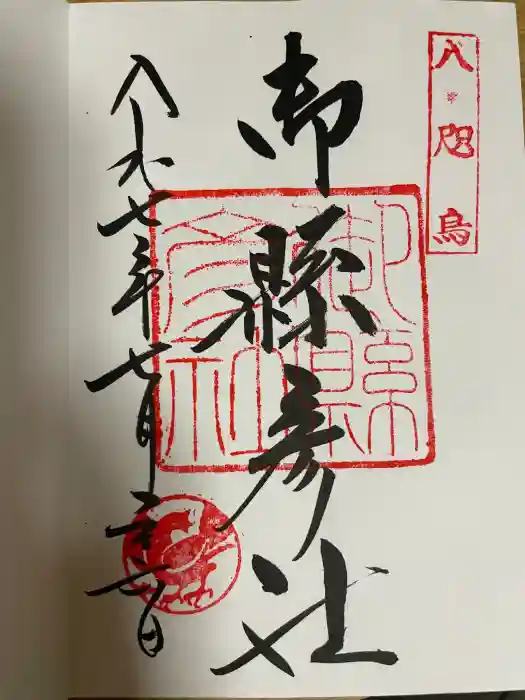 八咫烏
御縣彦社
御縣彦社
令和七年七月日